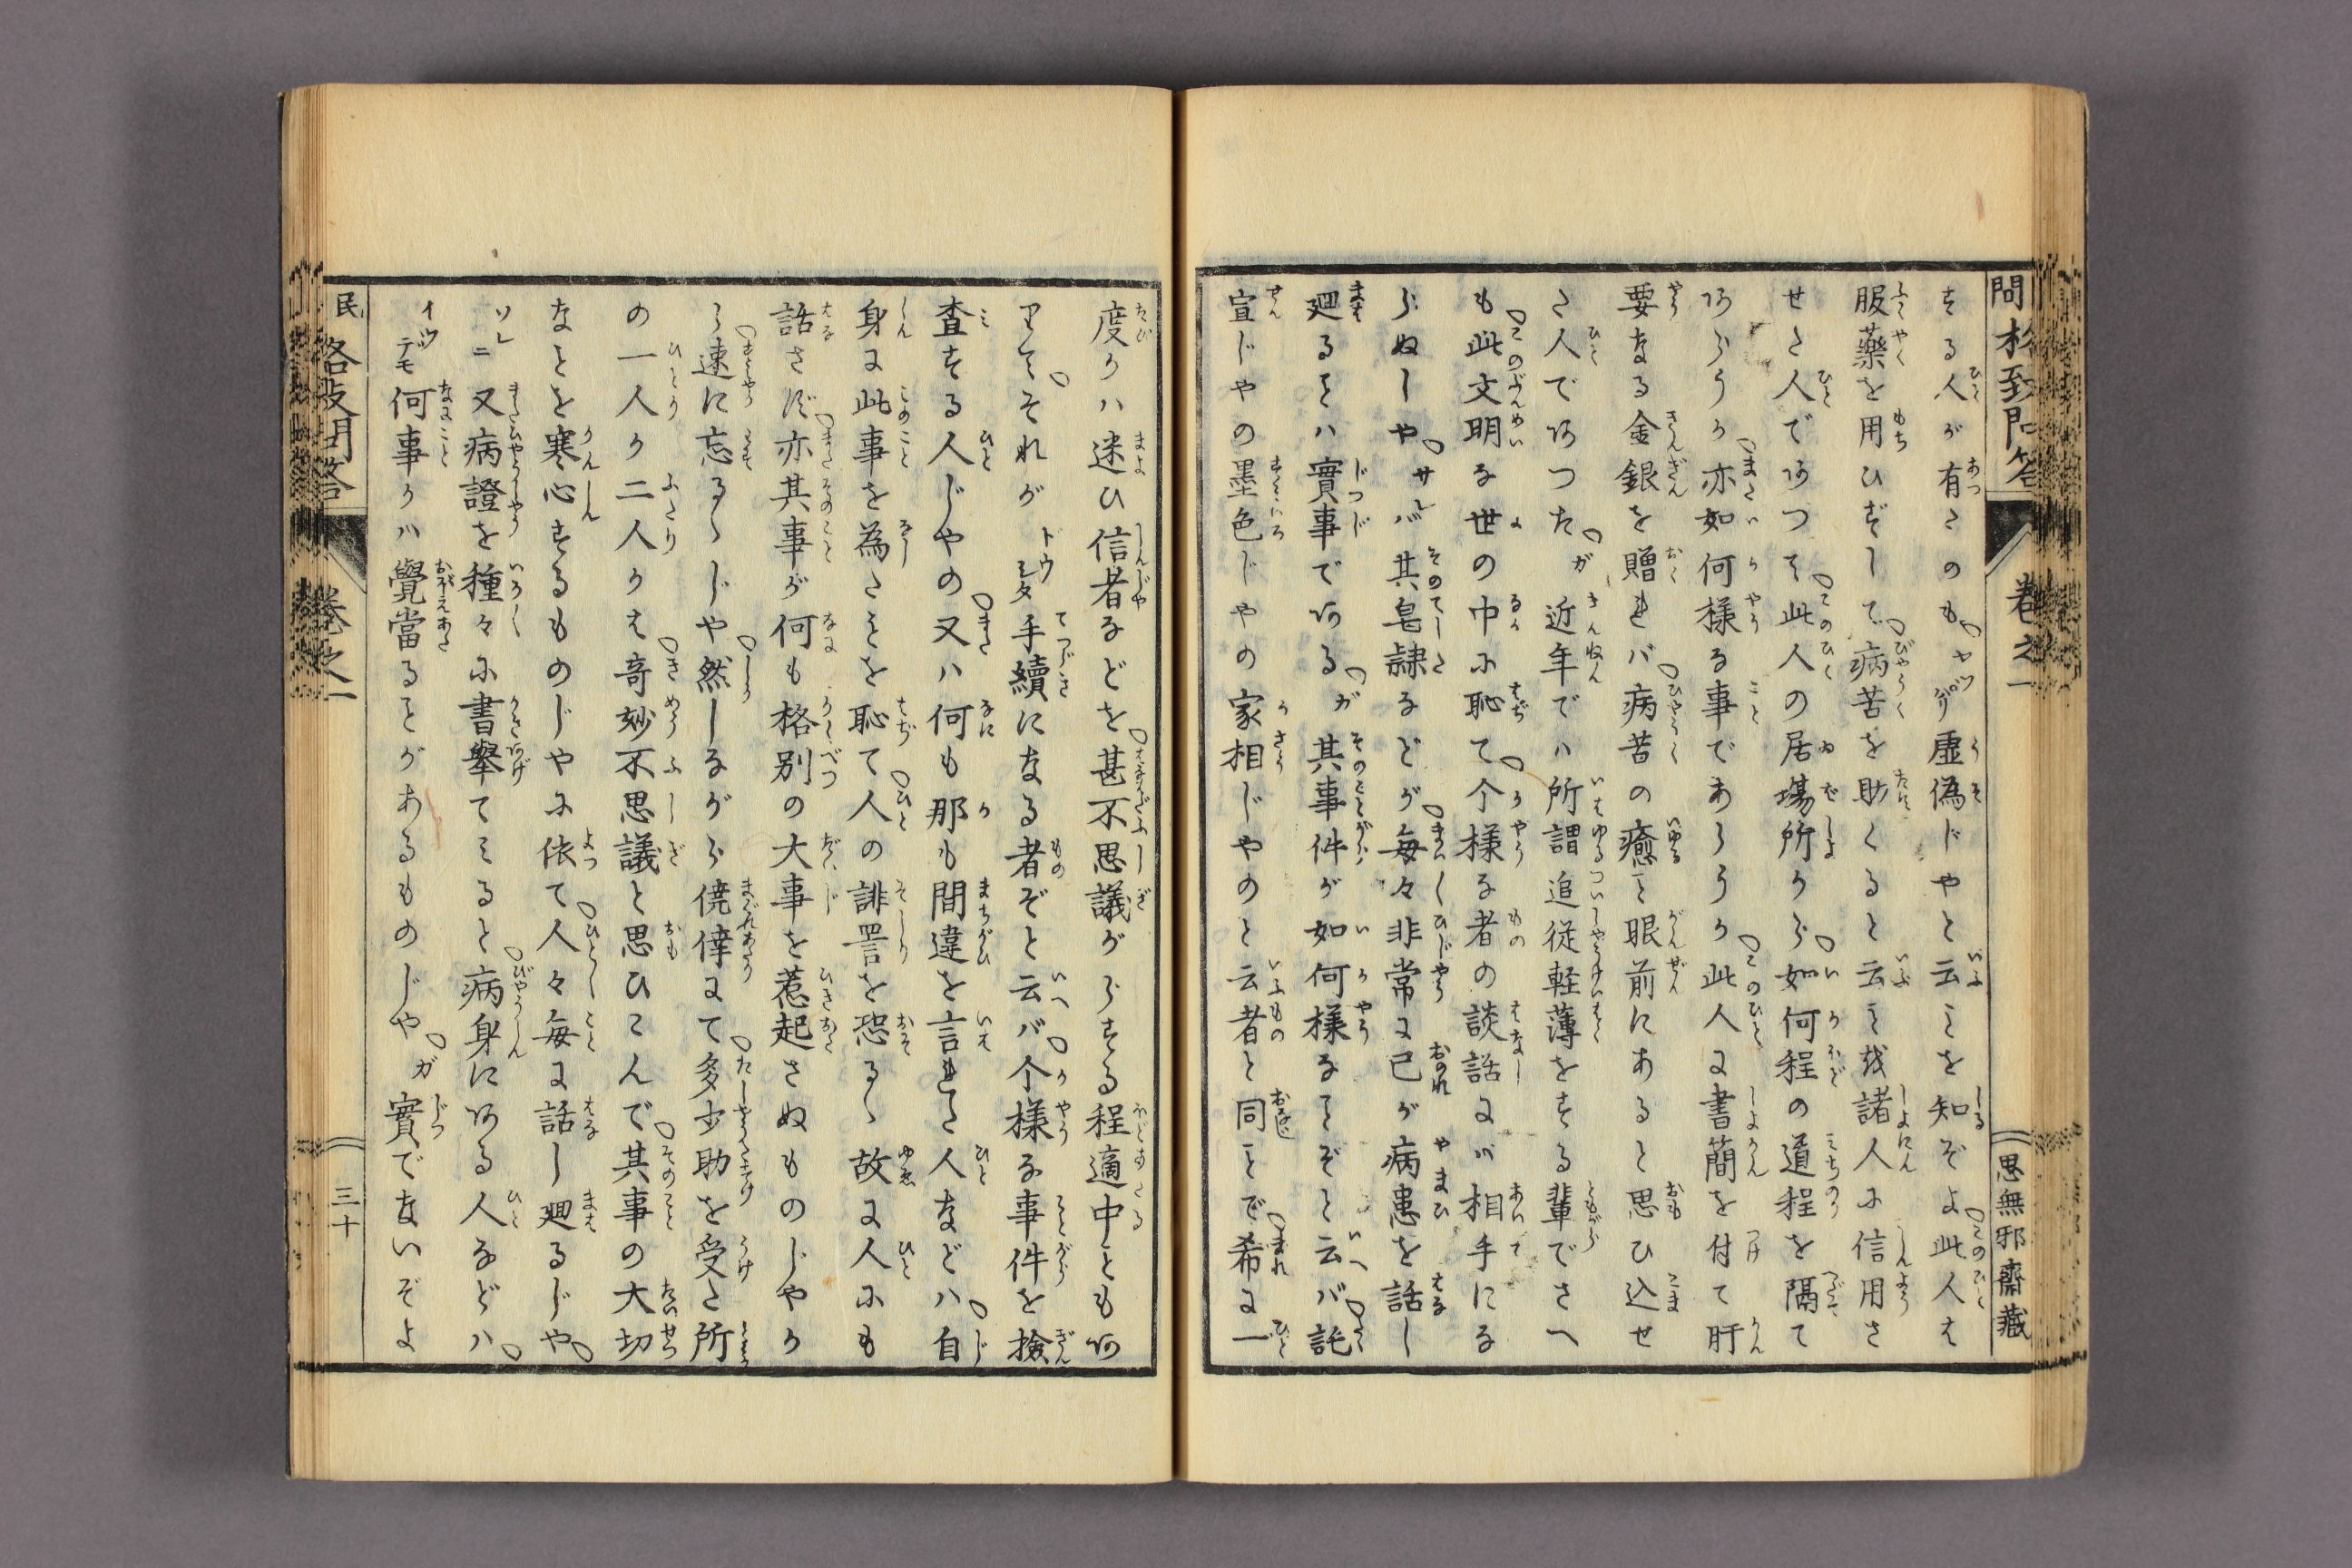 する人が有たのも ヤッパリ虚偽じやと云ことを知ぞよ此人は
服藥を用ひずして病苦を助くると云こと或諸人に信用さ
せた人でありつて此人の居場所から如何程の道程を隔て
あらうか亦如何様な事であらうか此人に書簡を付て肝
要なる金銀を贈れバ病苦の癒こと眼前にあると思ひ込せ
た人でありつたガ近年でハ所謂追従軽薄をする輩でさへ
も此文明な世の中に恥て个様な者の談話にバ相手にな
らぬしやサレバ其皂隷などが毎々非常に己が病患を話し
廻ることハ實事であるガ其事件が如何様なことぞと云バ託
宣じやの墨色じやの家相じやのと云者と同ことで希に一
度かハ迷ひ信者などを甚不思議がらする程適中ともあ
りてそれがドウシタ手續になる者ぞと云バ个様な事件を撿
査する人じやの又ハ何も那も間違を言れた人などハ自
身に此事を為たことを恥て人の誹詈を恐るゝ故に人にも
話さず亦其事が何も格別の大事を惹起さぬものじやか
ら速に忘るゝじや然しながら僥倖にて多少助を受た所
の一人か二人かは奇妙不思議と思ひこんで其事の大切
なことを寒心するものじやに依て人々毎に話し廻るじや
ソレニ又病證を種々に書擧てみると病身にある人などハ
イツデモ何事かハ覺當ることがあるものじやガ實でないぞよ
卷之一
思無邪齋藏
卷之一
三十